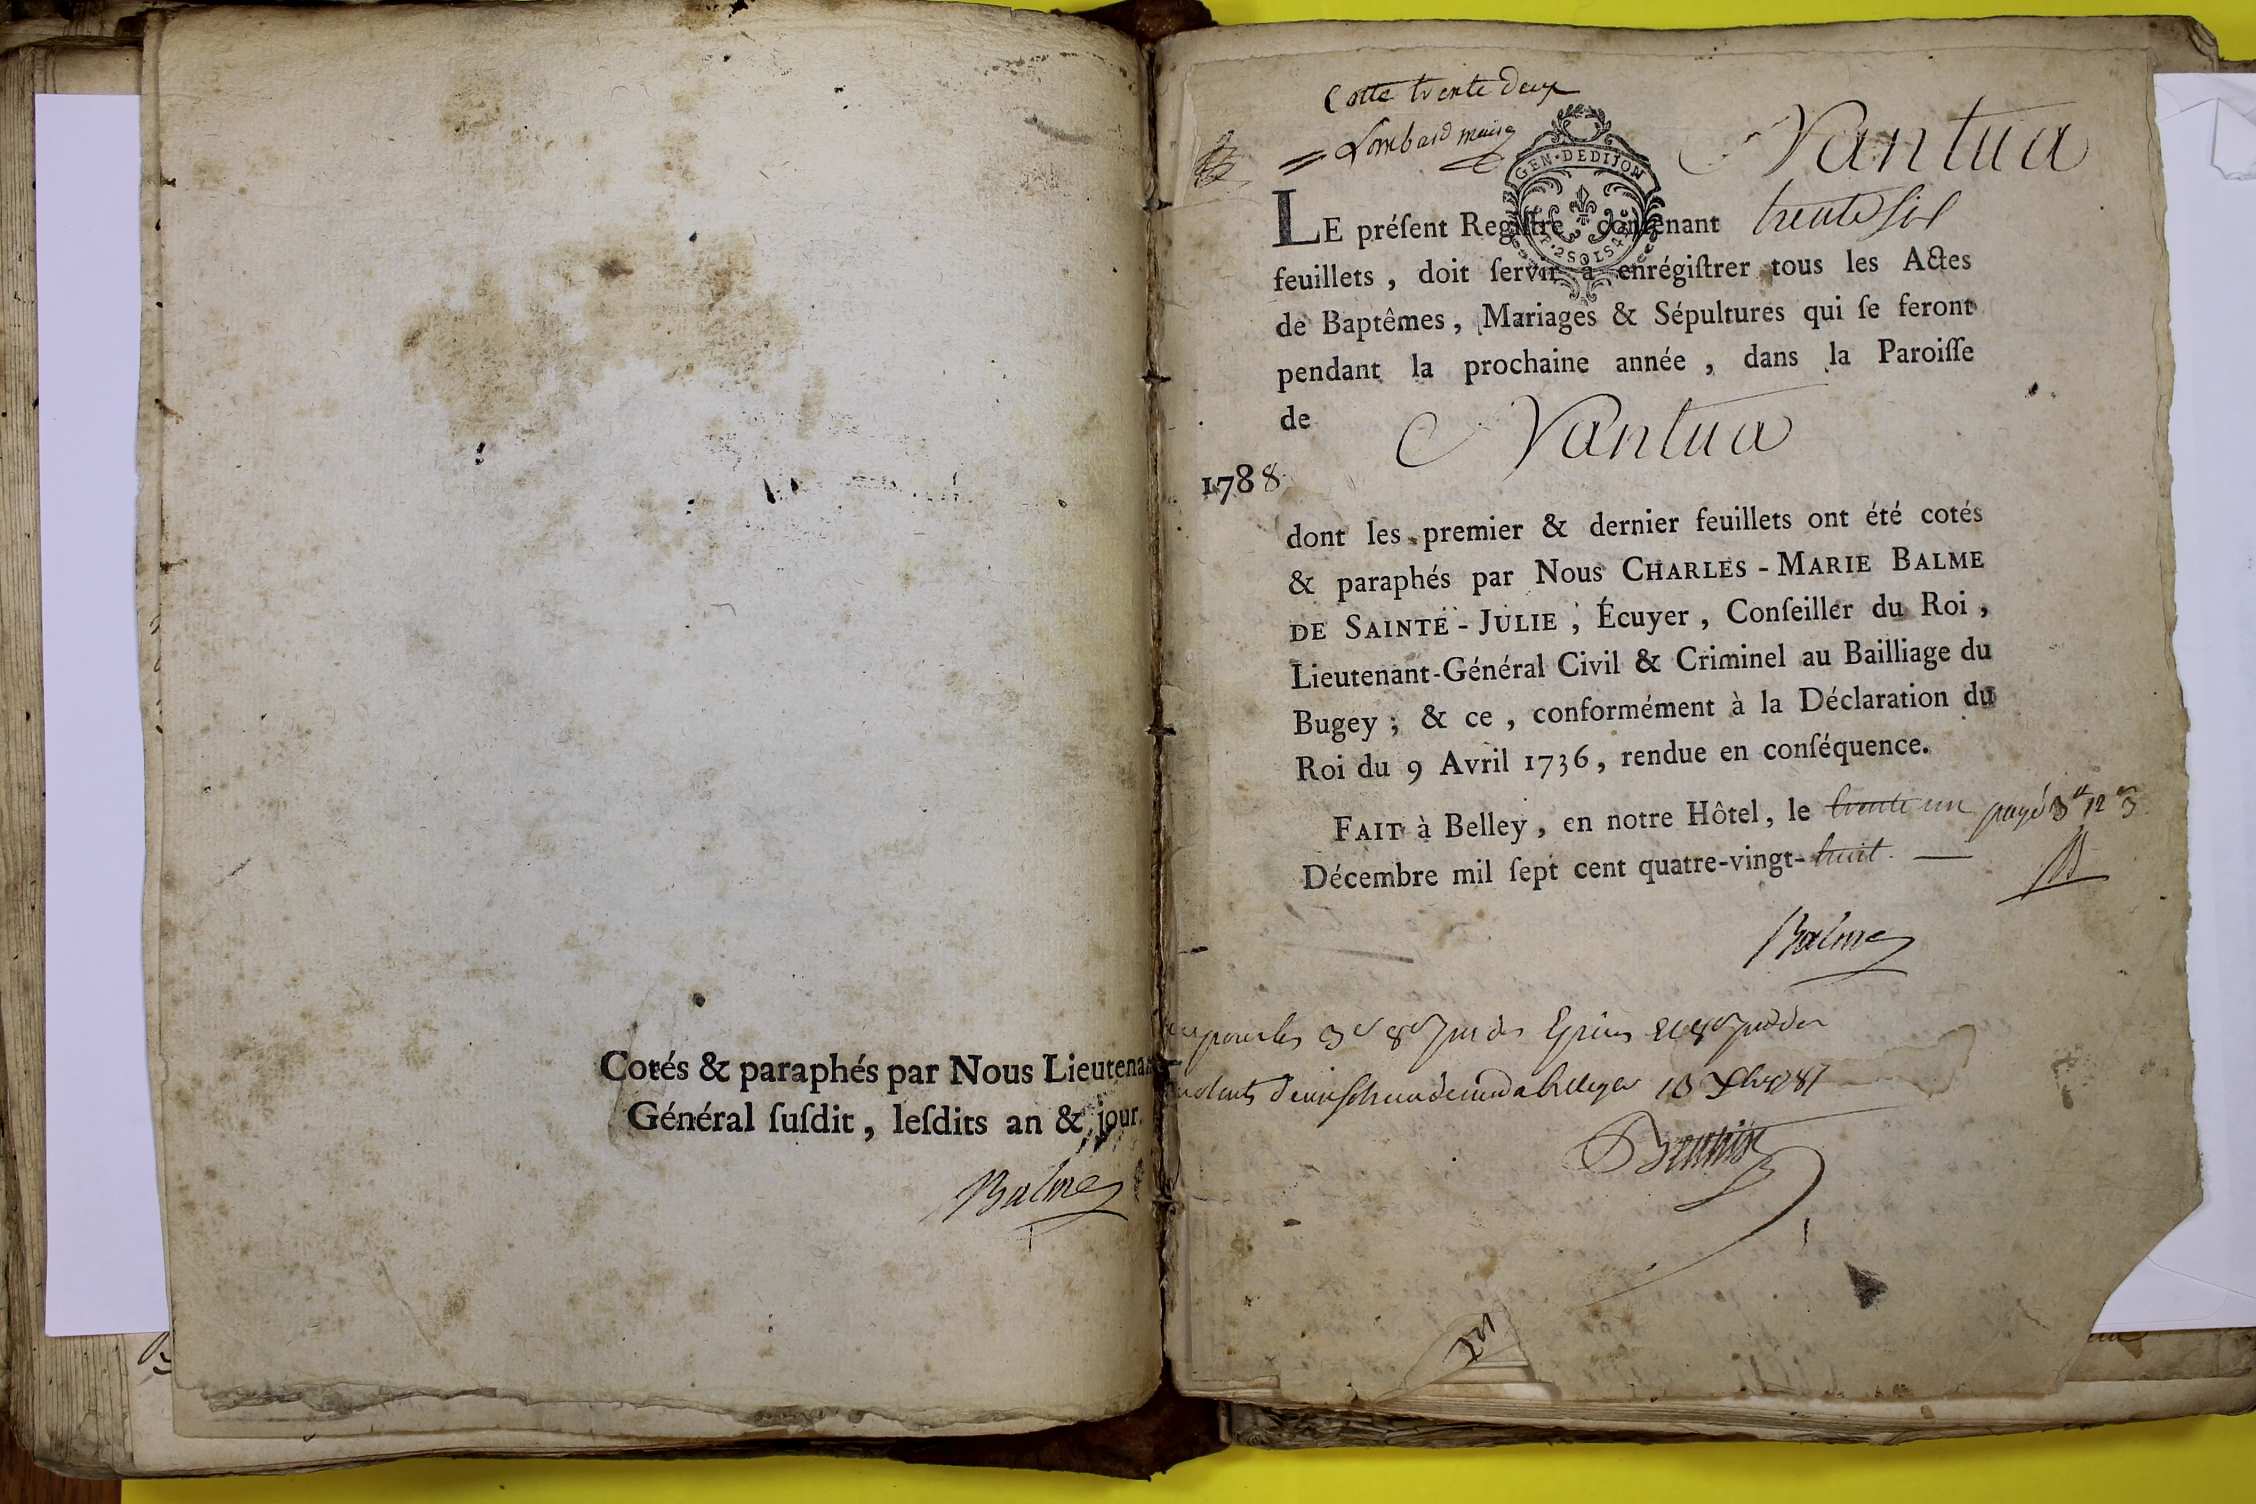 Cotés & paraphés par Nous Lieutenant
Général ſuſdit, leſdits an & jour.
Balme
Cotte trente deux
Lombard maire
Nantua
GEN·DEDIJON
2 SOLS
LE préſent Regiſtre, contenant trente six
feuillets, doit ſervir à enrégiſtrer tous les Actes
de Baptêmes, Mariages & Sépultures qui ſe feront
pendant la prochaine année, dans la Paroiſſe
de Nantua
1788
dont les premier & dernier feuillets ont été cotés
& paraphés par Nous CHARLES-MARIE BALME
DE SAINTE-JULIE, Écuyer, Conſeiller du Roi,
Lieutenant-Général Civil & Criminel au Bailliage du
Bugey; & ce, conformément à la Déclaration du
Roi du 9 Avril 1736, rendue en conſéquence.
FAIT à Belley, en notre Hôtel, le trente un payé 3 12 3
Décembre mil ſept cent quatre-vingt-huit
Balme
pour les 3 8 8
a belley 18